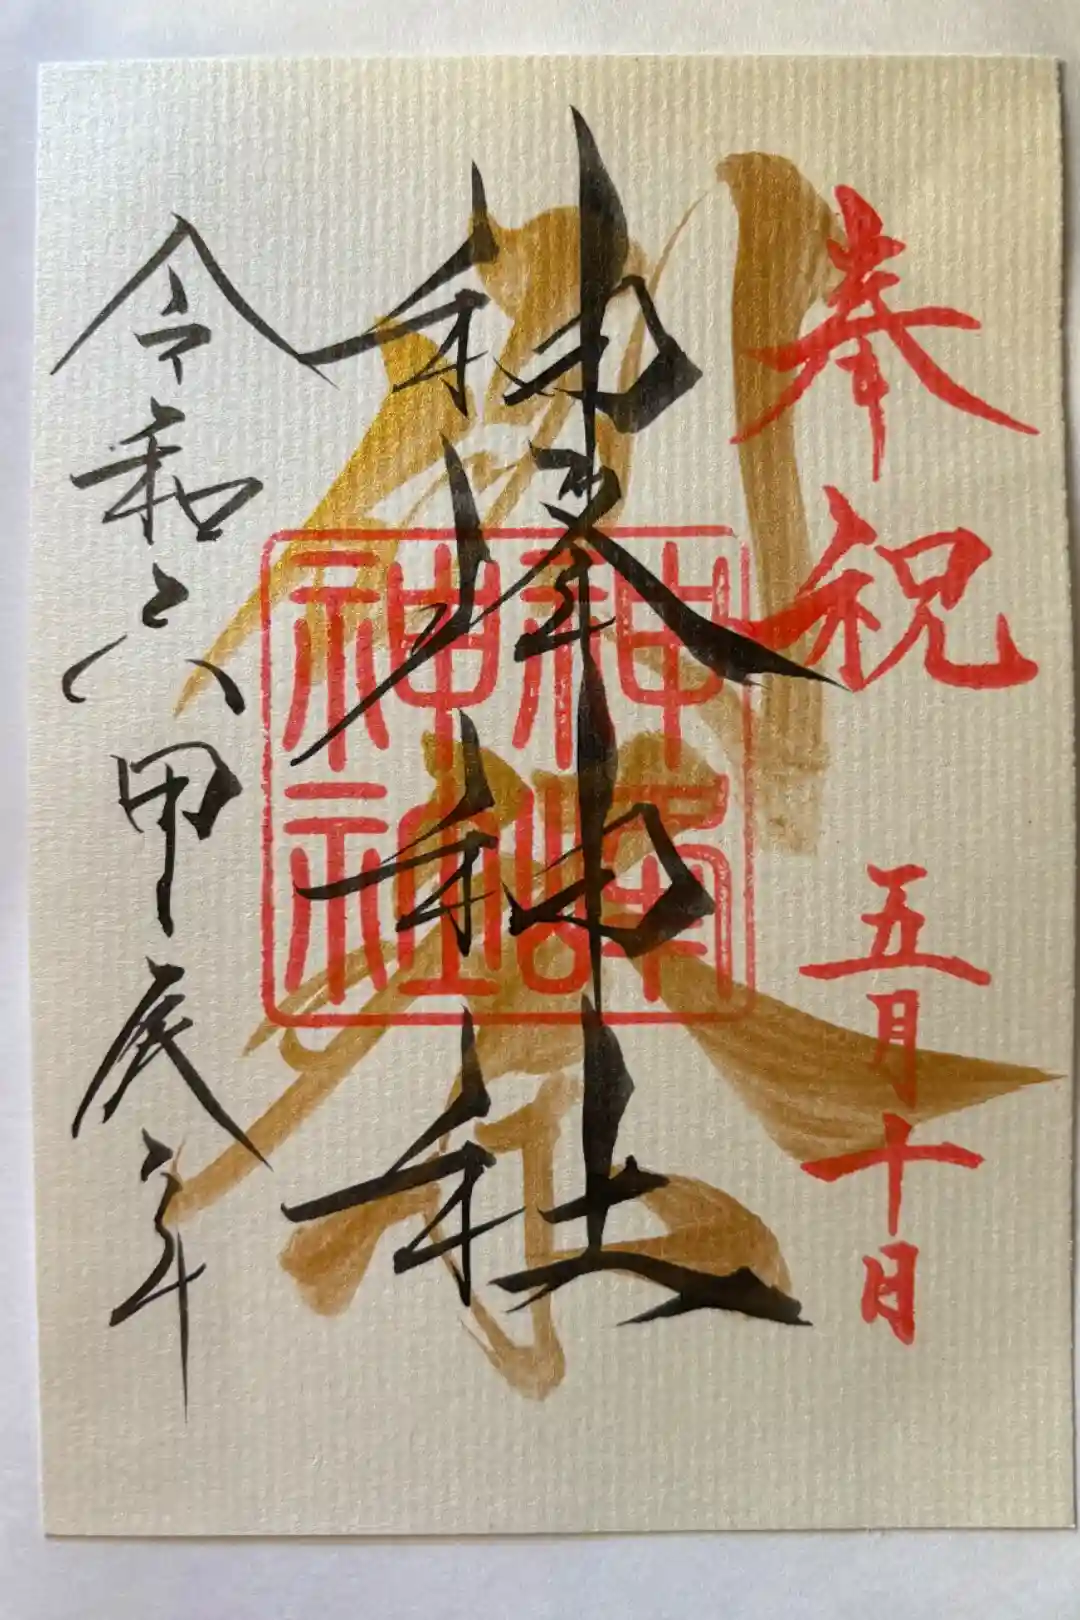 奉祝
五月十日
例祭
神峰神社
神峰
神社
令和六甲辰年